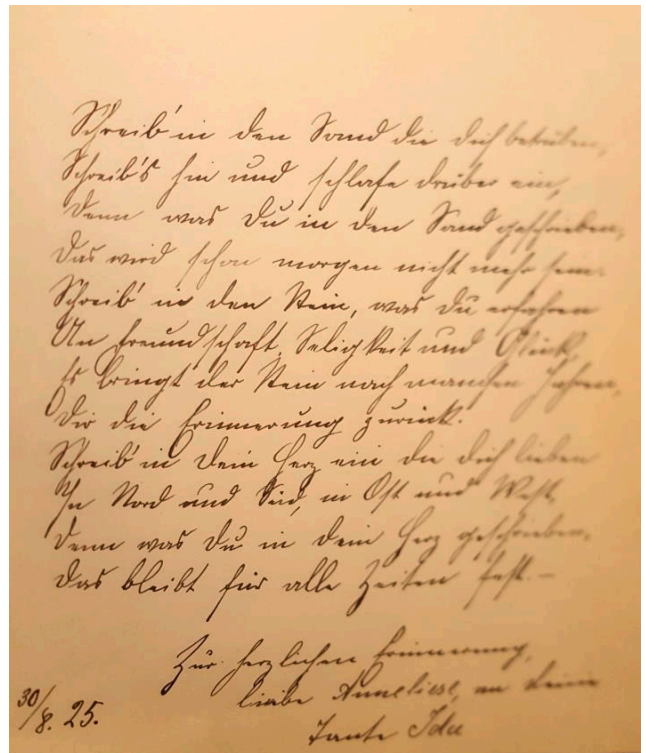 Schreib' in den Sand die dich betrüben,
Schreib's hin und schlafe drüber ein,
Denn was Du in den Sand geschrieben,
Das wird schon morgen nicht mehr sein.
Schreib' in den Stein, was Du erfahren
An Freundschaft, Seligkeit und Glück,
Es bringt der Stein nach manchen Jahren,
Dir die Erinnerung zurück.
Schreib' in Dein Herz ein die dich lieben
In Nord und Süd, in Ost und West,
Denn was Du in dein Herz geschrieben,
Das bleibt für alle Zeiten fest. –
Zur herzlichen Erinnerung,
liebe Anneliese, an deine
Tante Ida
30/8. 25.